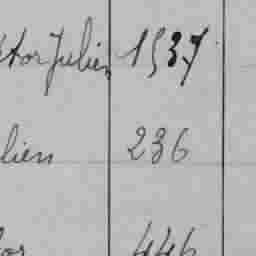 ctor Julien 1937
lien 236
or 446